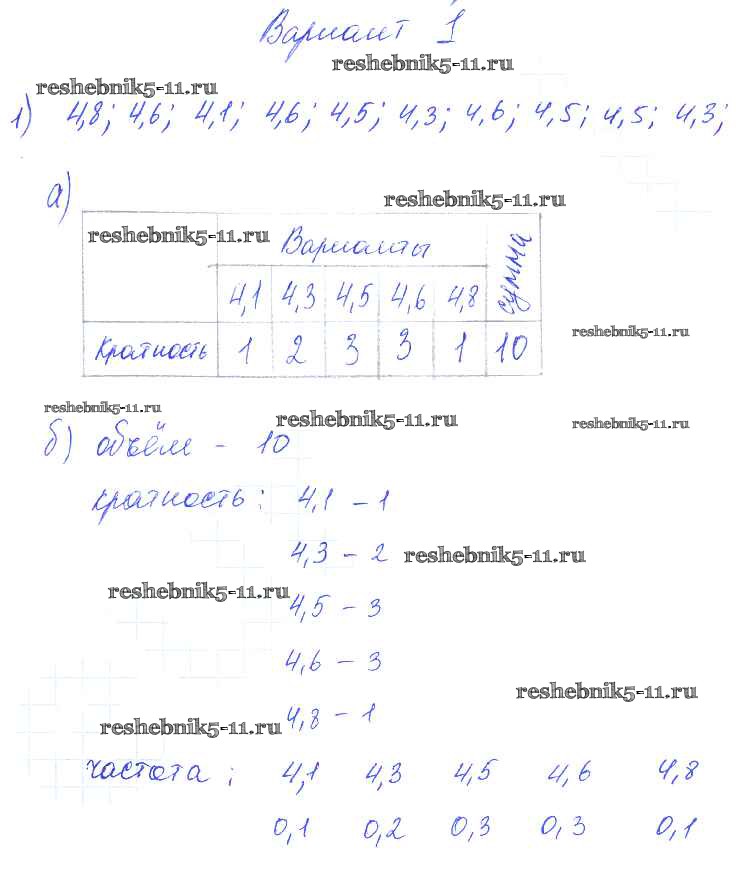 Вариант 1
reshebnik5-11.ru
reshebnik5-11.ru
1) 4,8; 4,6; 4,1; 4,6; 4,5; 4,3; 4,6; 4,5; 4,5; 4,3;
а)
reshebnik5-11.ru
reshebnik5-11.ru
Варианты сумма
4,1 4,3 4,5 4,6 4,8
reshebnik5-11.ru
Кратность 1 2 3 3 1 10
reshebnik5-11.ru
reshebnik5-11.ru
reshebnik5-11.ru
б) объём - 10
кратность: 4,1 - 1
4,3 - 2
reshebnik5-11.ru
reshebnik5-11.ru
4,5 - 3
4,6 - 3
reshebnik5-11.ru
4,8 - 1
reshebnik5-11.ru
частота: 4,1 4,3 4,5 4,6 4,8
0,1 0,2 0,3 0,3 0,1